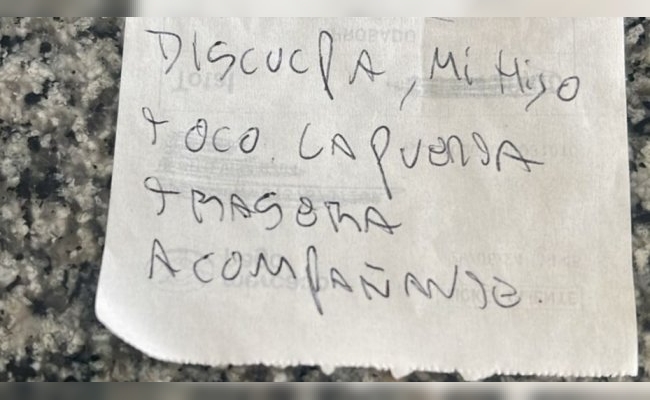 DISCULPA, Mi HiJO
TOCO LA PUERTA
TRASERA
ACOMPAÑANTE.